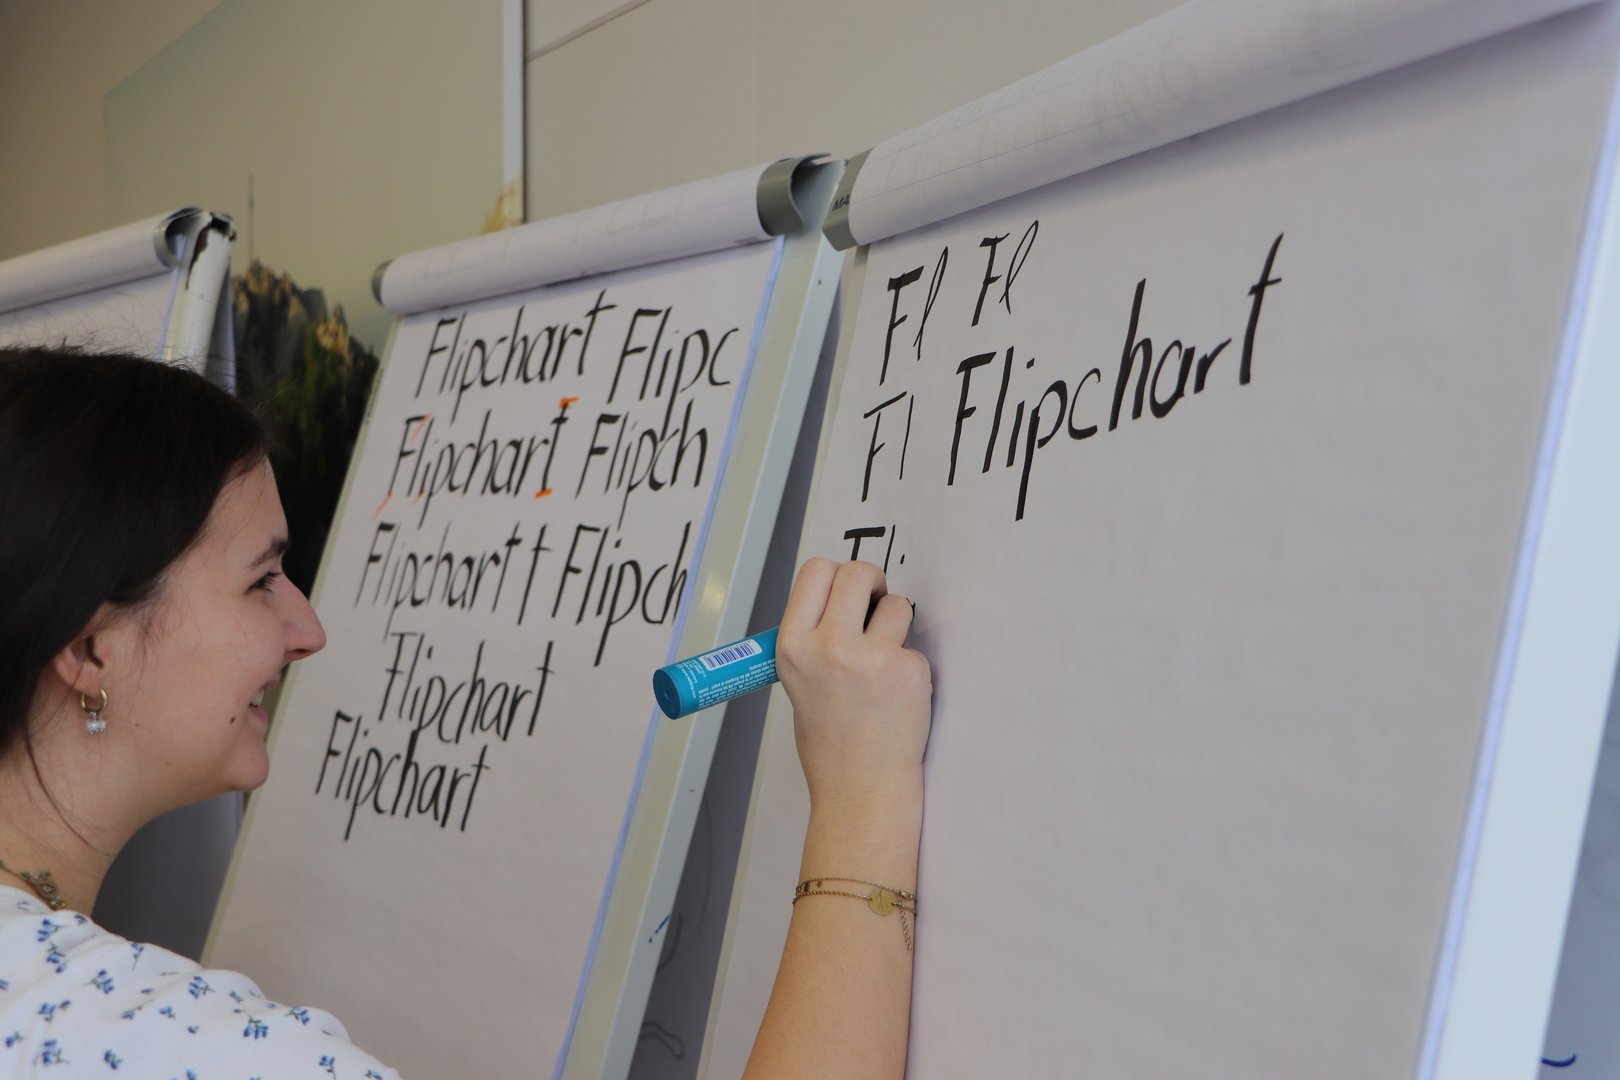 Flipchart Flipc
Flipchart Flipch
Flipchart t Flipch
Flipchart
Flipchart
Fl Fl
Fl Flipchart
Fli